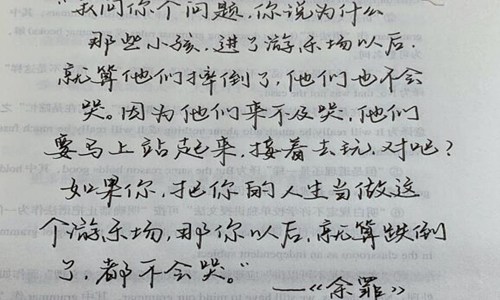 “我问你个问题，你说为什么
那些小孩，进了游乐场以后，
就算他们摔倒了，他们也不会
哭。因为他们来不及哭，他们
要马上站起来，接着去玩，对吧？
如果你，把你的人生当做这
个游乐场，那你以后，就算跌倒
了，都不会哭。”
——《余罪》